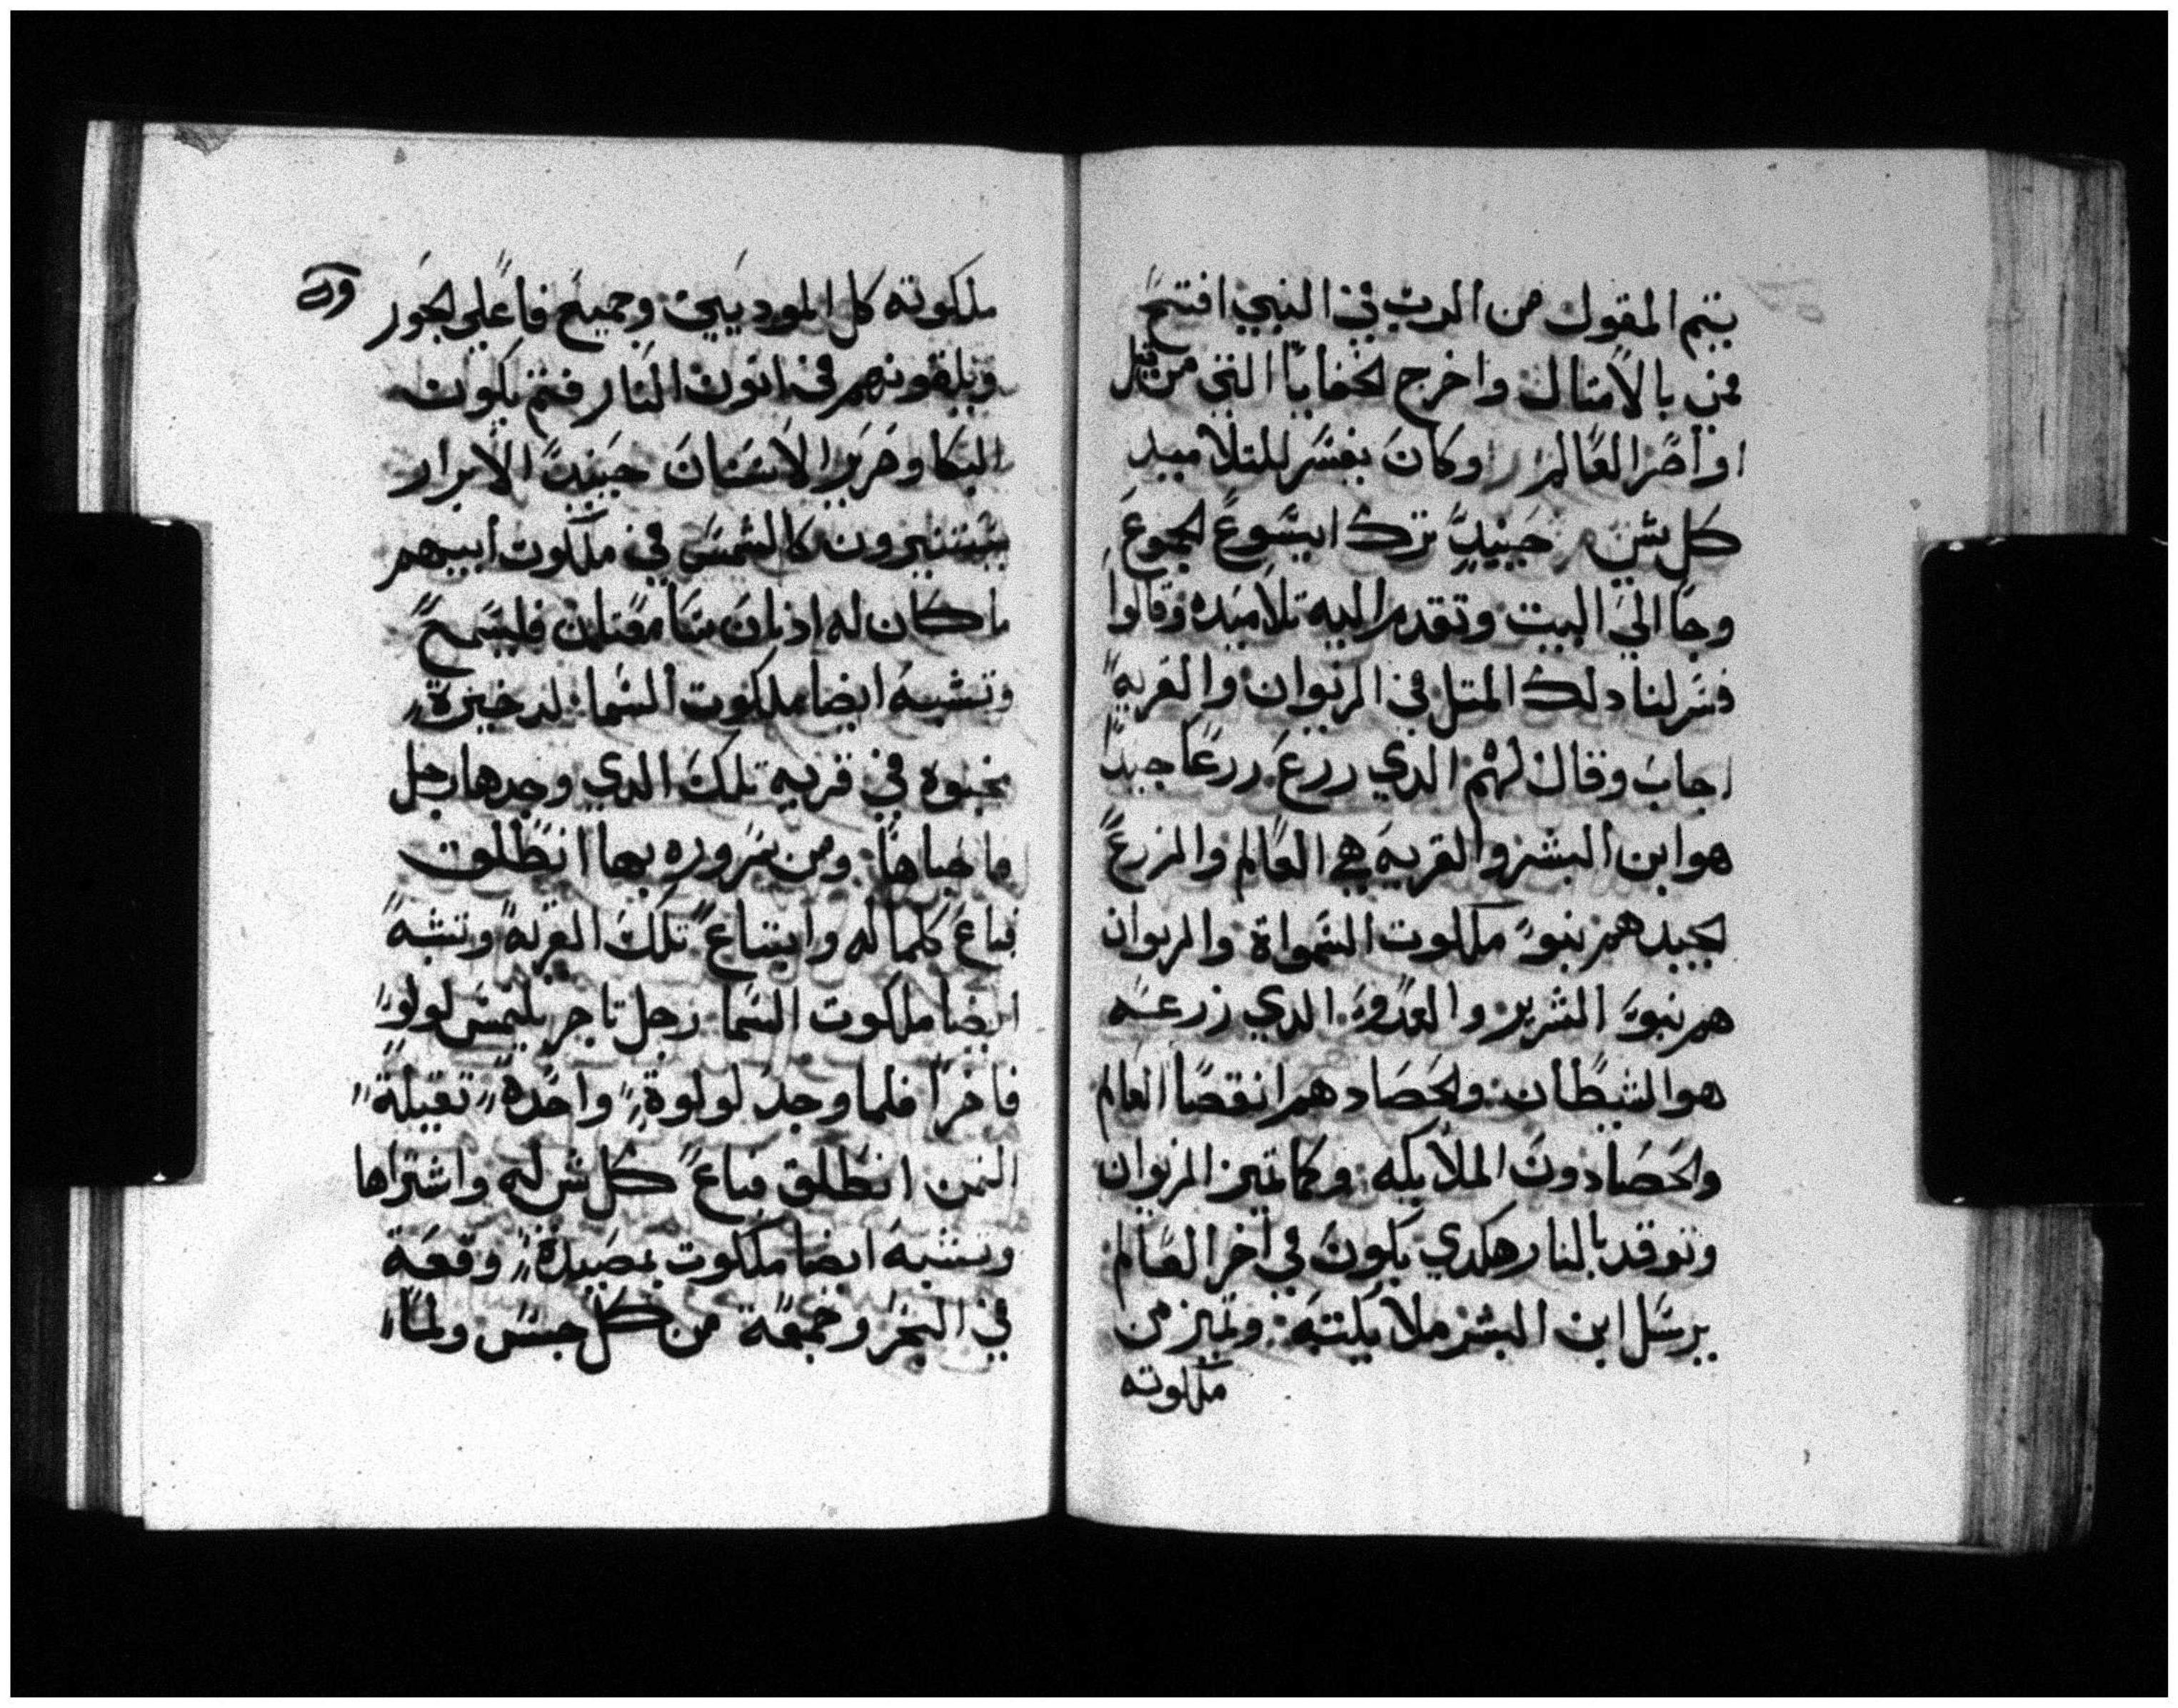 يتم المقول من الرب في النبي افتتح
فمي بالامتال واخرج الخفايا التي من قبل
اواصر العالم وكان يفسر للتلاميد
كل شي حينيد ترك ايسوع الجموع
وجا الي البيت وتقدم اليه تلاميده وقالوا
فسر لنا دلك المتل في الزيوان والقريه
اجاب وقال لهم الدي زرع زرعا جيدا
هو ابن البشر والقريه هي العالم والزرع
الجيد هم بنو ملكوت السمواة والزيوان
هم بنو الشرير والعدو الدي زرعه
هو الشيطان والحصاد هو انقضا العالم
والحصادون الملايكه وكما تميز الزيوان
وتوقد بالنار هكدي يكون في اخر العالم
يرسل ابن البشر ملايكته وتميز من
ملكوته
ملكوته كل المودييين وجميع فاعلي الجور
ويلقونهم في اتون النار فتم يكون
البكا وصرير الاسنان حينيد الابرار
يستنيرون كالشمس في ملكوت ابيهم
ما كان له ادنان سامعتان فليسمع
وتشبه ايضا ملكوت السما لدخيرة
مخبوه في قريه تلك الدي وجدها رجل
ما خباها ومن سروره بها انطلق
فباع كلما له وابتاع تلك القريه وتشبه
ايضا ملكوت السما رجل تاجر يلتمس لولو
فاخرا فلما وجد لولوة واحده تقيلة
التمن انطلق فباع كل شي له واشتراها
وتشبه ايضا ملكوت بمصيدة وقعة
في البحر وجمعة من كل جنس ولما